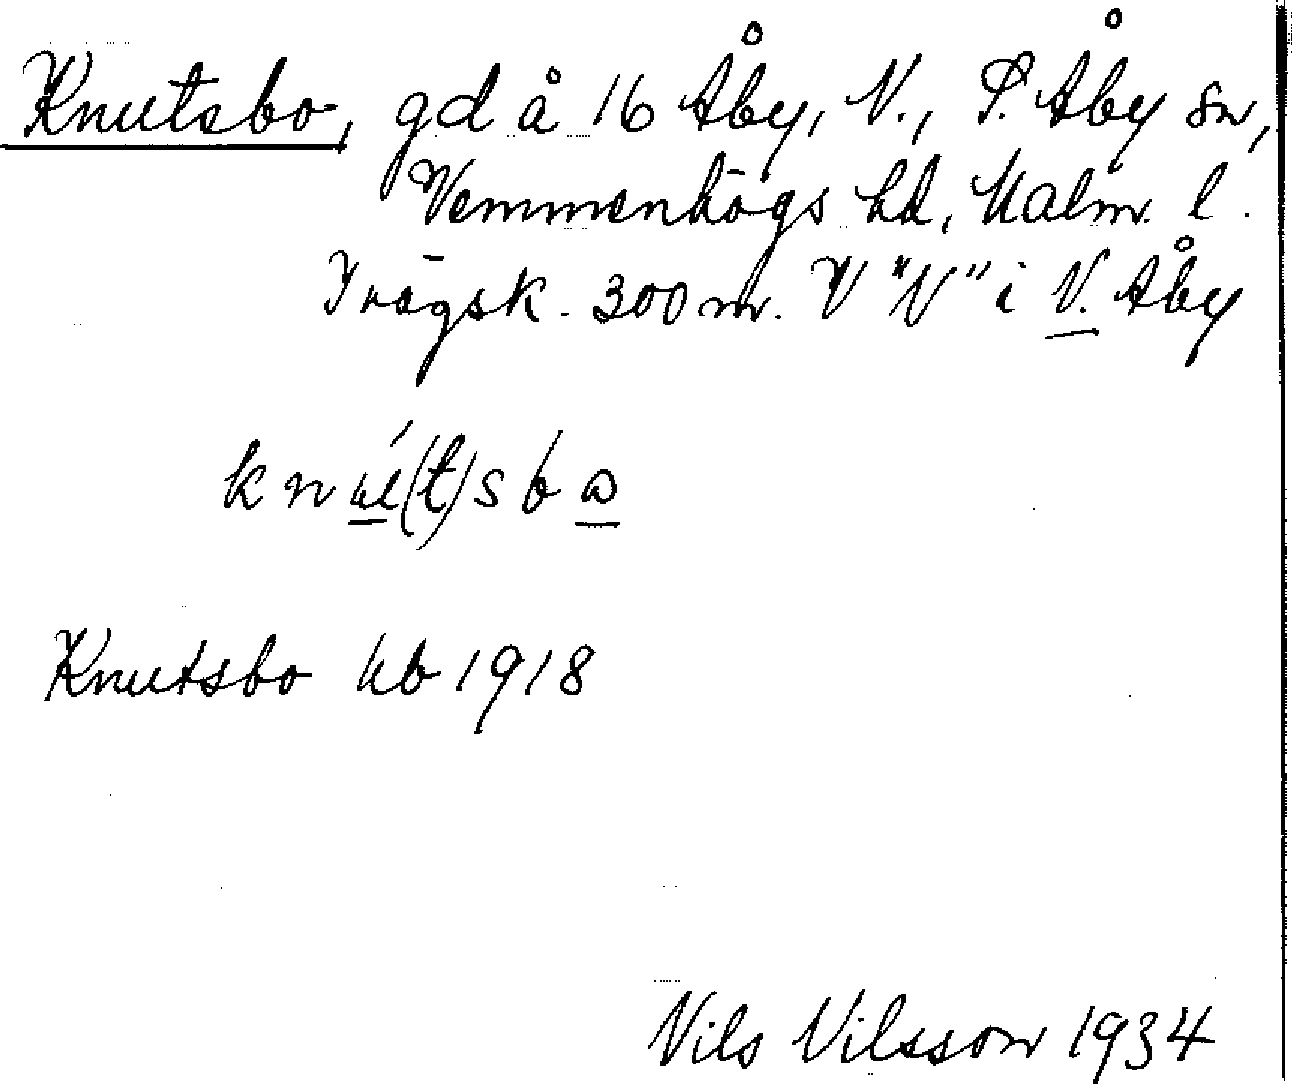 Knutsbo, gd å 16 Åby, V., Ö. Åby sn,
Vemmenhögs hd, Malm. l.
I vägsk. 300 m. V "V" i V. Åby
knu(t)sbo
Knutsbo kb 1918
Nils Nilsson 1934